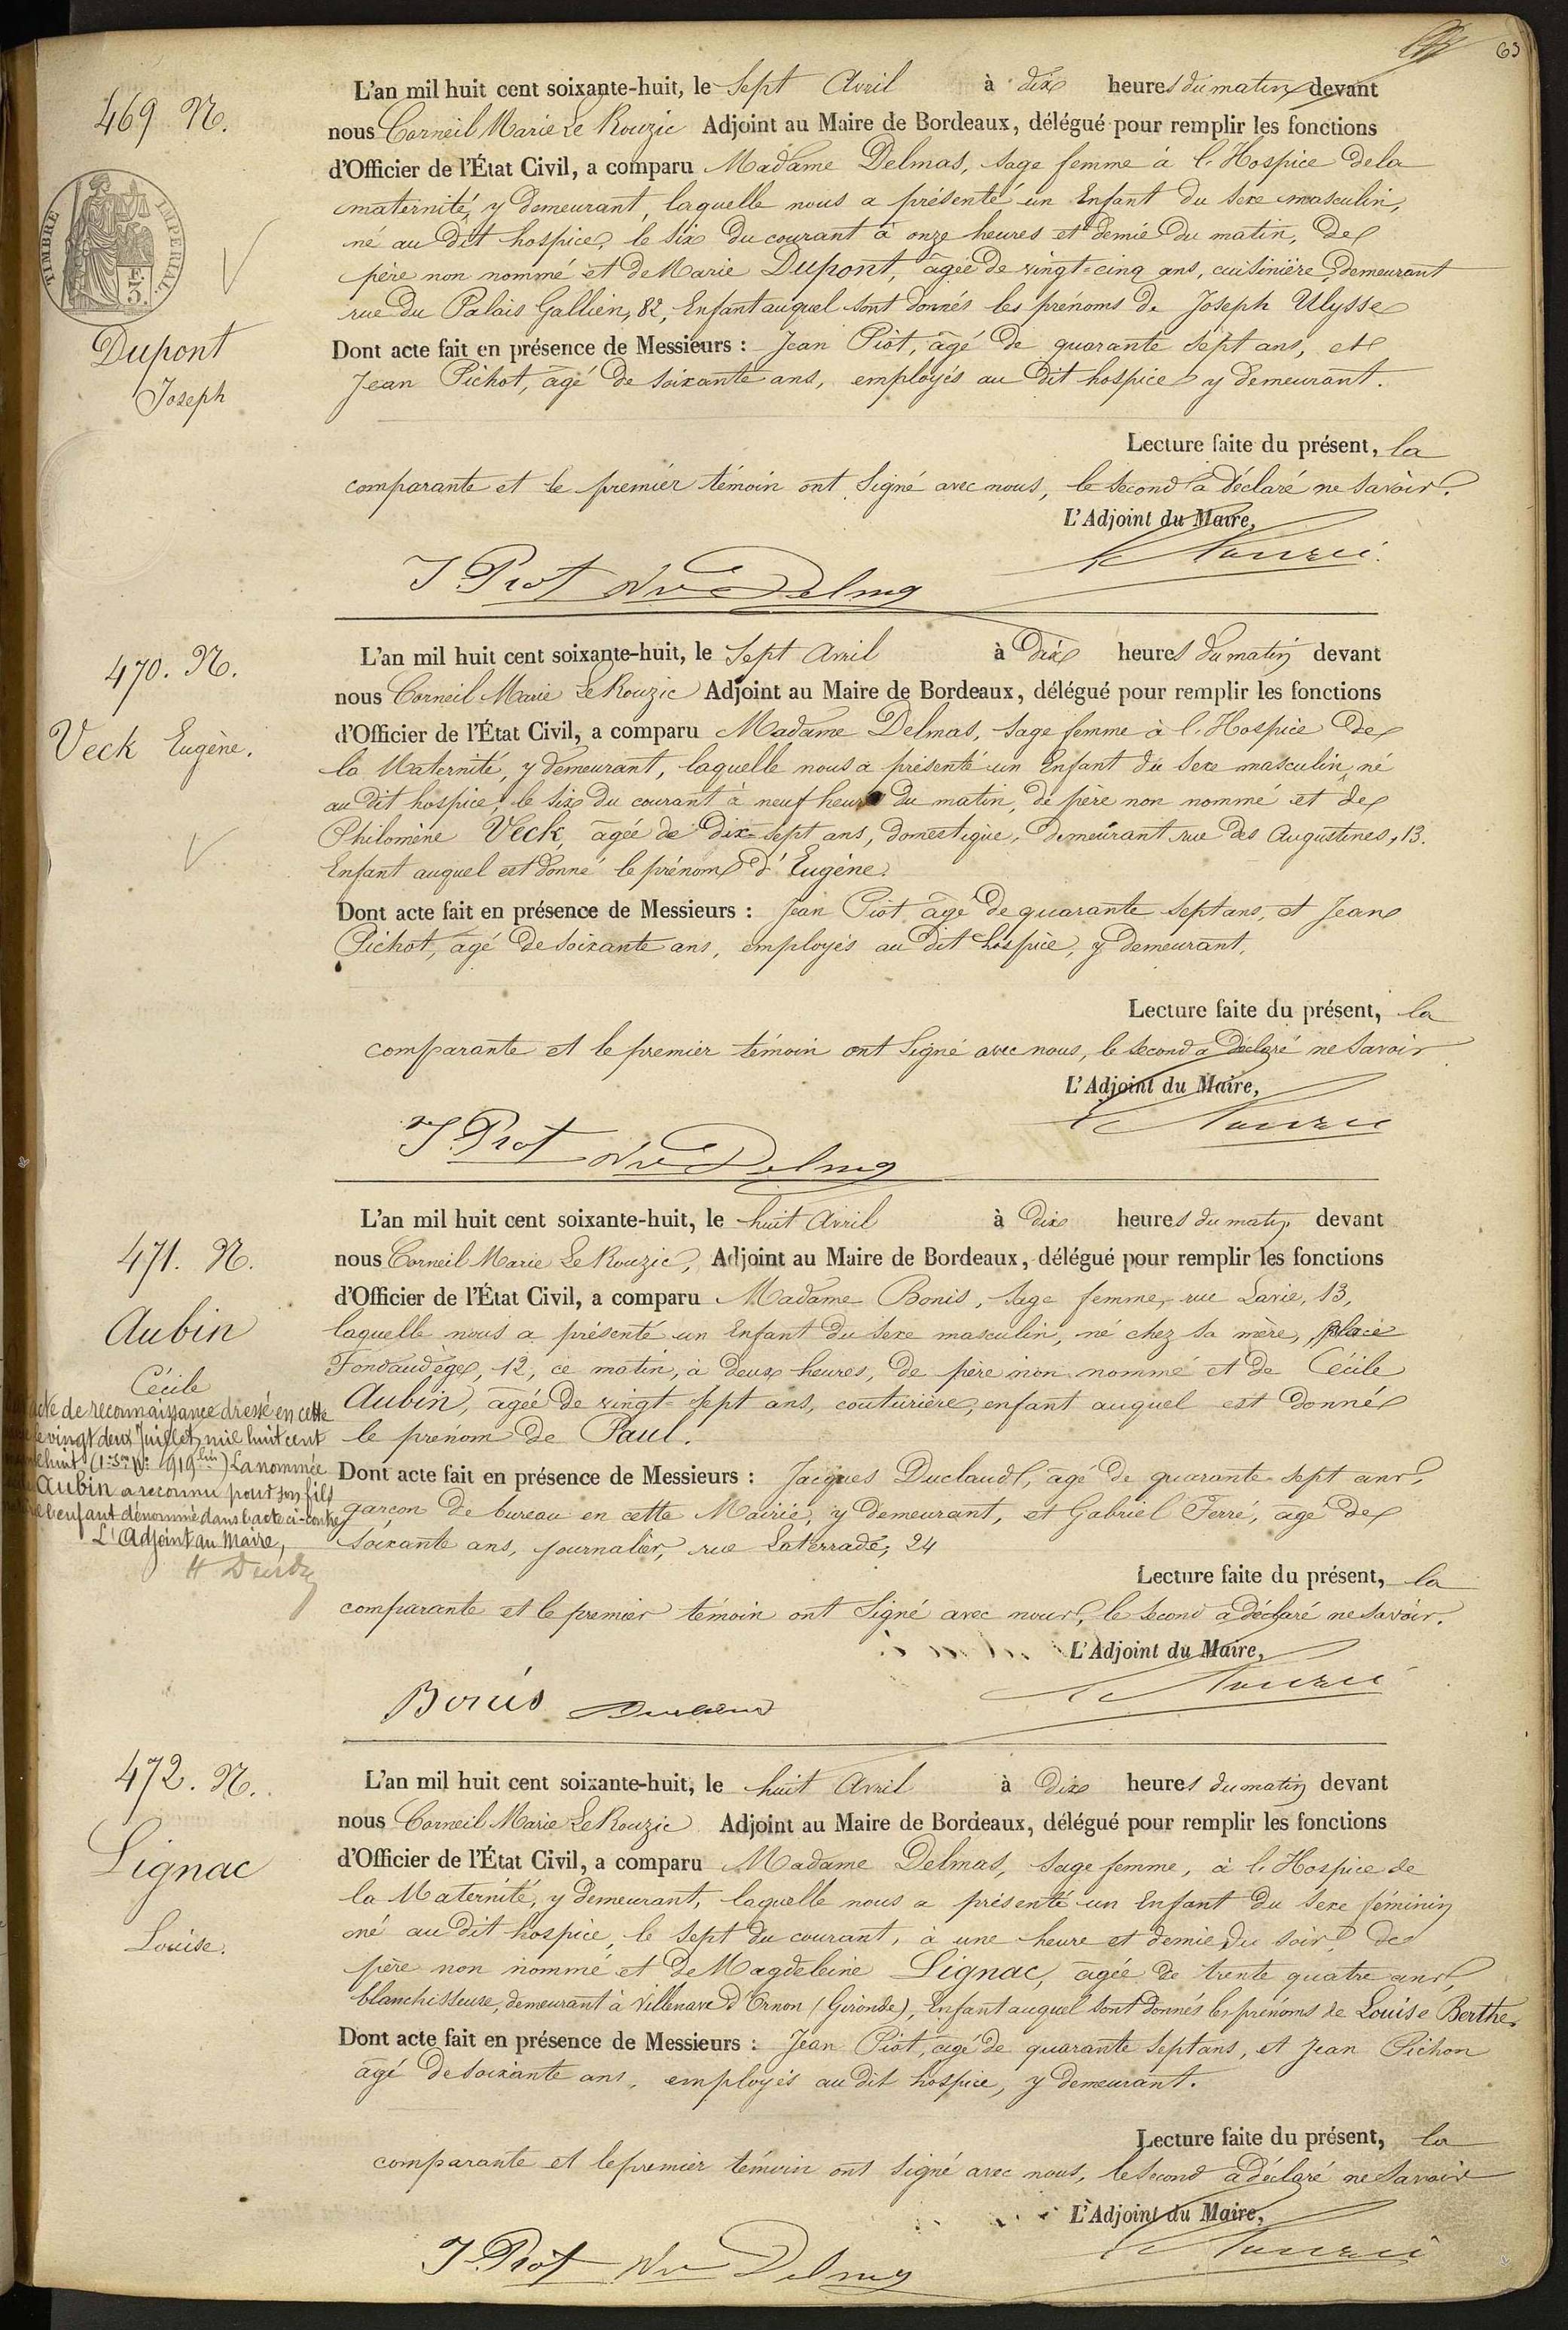 63
469 N.
TIMBRE IMPERIAL
Dupont
Joseph
L'an mil huit cent soixante-huit, le Sept Avril à dix heures du matin devant
nous Corneil Marie Le Rouzic Adjoint au Maire de Bordeaux, délégué pour remplir les fonctions
d'Officier de l'État Civil, a comparu Madame Delmas, sage femme à l'Hospice de la
maternité, y demeurant, laquelle nous a présenté un Enfant du sexe masculin,
né au dit hospice, le six du courant à onze heures et demie du matin, de
père non nommé et de Marie Dupont, âgée de vingt-cinq ans, cuisinière, demeurant
rue du Palais Gallien, 82, Enfant auquel sont donnés les prénoms de Joseph Ulysse
Dont acte fait en présence de Messieurs : Jean Piot, âgé de quarante sept ans, et
Jean Pichot, âgé de soixante ans, employés au dit hospice y demeurant.
Lecture faite du présent, la
comparante et le premier témoin ont signé avec nous, le second a déclaré ne savoir.
L'Adjoint du Maire,
J Piot Delmas
470. N.
Veck Eugène.
L'an mil huit cent soixante-huit, le Sept Avril à dix heures du matin devant
nous Corneil Marie Le Rouzic Adjoint au Maire de Bordeaux, délégué pour remplir les fonctions
d'Officier de l'État Civil, a comparu Madame Delmas, sage femme à l'Hospice de
la Maternité, y demeurant, laquelle nous a présenté un Enfant du sexe masculin, né
au dit hospice, le six du courant à neuf heures du matin, de père non nommé et de
Philomène Veck, âgée de dix-sept ans, domestique, demeurant rue des Augustines, 13.
Enfant auquel est donné le prénom d'Eugène.
Dont acte fait en présence de Messieurs : Jean Piot âgé de quarante sept ans, et Jean
Pichot, âgé de soixante ans, employés au dit hospice, y demeurant.
Lecture faite du présent, la
comparante et le premier témoin ont signé avec nous, le second a déclaré ne savoir
L'Adjoint du Maire,
J Piot Delmas
471. N.
Aubin
Cécile
acte de reconnaissance dressé en cette
le vingt deux Juillet mil huit cent
huit (1re Son No 919 bis) La nommée
Aubin a reconnu pour son fils
l'enfant dénommé dans l'acte ci-contre
L'Adjoint au Maire,
L'an mil huit cent soixante-huit, le huit Avril à dix heures du matin devant
nous Corneil Marie Le Rouzic, Adjoint au Maire de Bordeaux, délégué pour remplir les fonctions
d'Officier de l'État Civil, a comparu Madame Bonis, sage femme, rue Lavie, 13,
laquelle nous a présenté un Enfant du sexe masculin, né chez sa mère, place
Fondaudège, 12, ce matin, à deux heures, de père non nommé et de Cécile
Aubin, âgée de vingt-sept ans, couturière, enfant auquel est donné
le prénom de Paul.
Dont acte fait en présence de Messieurs : Jacques Duclaud, âgé de quarante-sept ans,
garçon de bureau en cette Mairie, y demeurant, et Gabriel Ferré, âgé de
soixante ans, journalier, rue Laterrade, 24
Lecture faite du présent, la
comparante et le premier témoin ont signé avec nous, le second a déclaré ne savoir.
L'Adjoint du Maire,
Bonis
472. N.
Lignac
Louise.
L'an mil huit cent soixante-huit, le huit Avril à dix heures du matin devant
nous Corneil Marie Le Rouzic Adjoint au Maire de Bordeaux, délégué pour remplir les fonctions
d'Officier de l'État Civil, a comparu Madame Delmas, sage femme, à l'Hospice de
la Maternité, y demeurant, laquelle nous a présenté un Enfant du sexe féminin
né au dit hospice, le sept du courant, à une heure et demie du soir, de
père non nommé et de Magdeleine Lignac, âgée de trente quatre ans,
blanchisseuse, demeurant à Villenave d'Ornon (Gironde), Enfant auquel sont donnés les prénoms de Louise Berthe.
Dont acte fait en présence de Messieurs : Jean Piot, âgé de quarante sept ans, et Jean Pichon
âgé de soixante ans, employés au dit hospice, y demeurant.
Lecture faite du présent, la
comparante et le premier témoin ont signé avec nous, le second a déclaré ne savoir
L'Adjoint du Maire,
J Piot Delmas